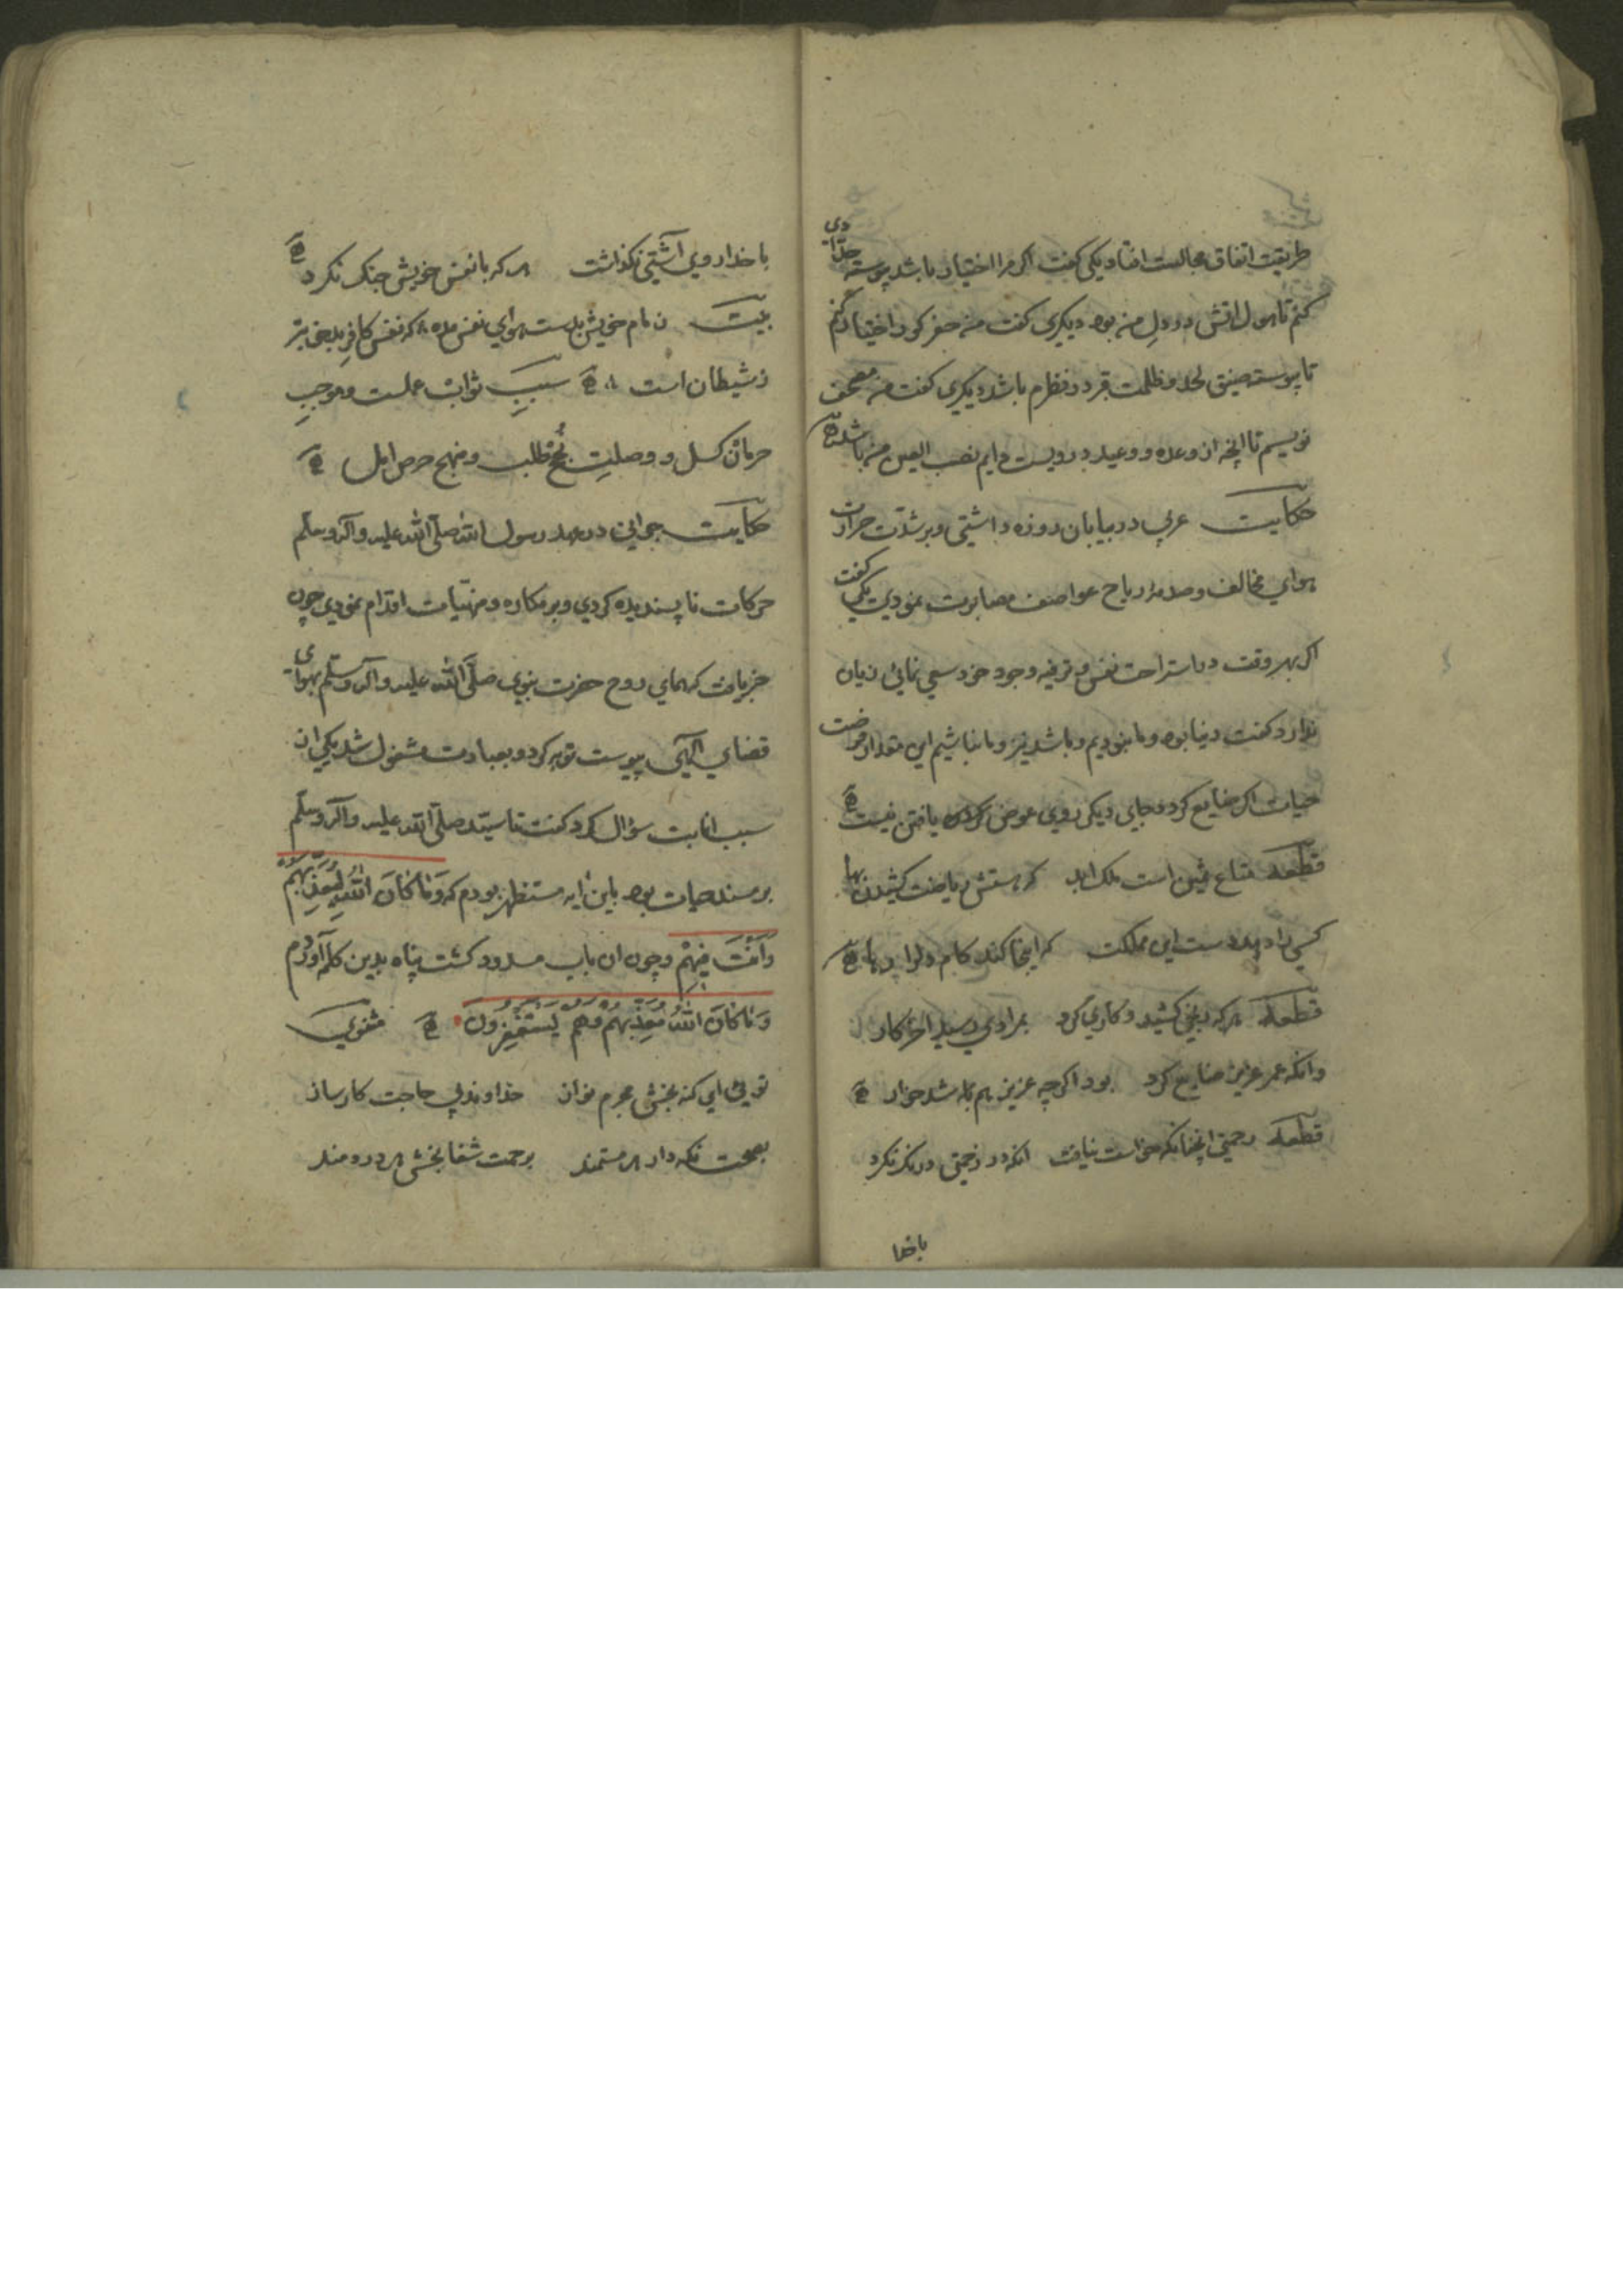 طریقت اتفاق مجالست افتاد یکی کفت اکر مرا اختیار باشد پیوسته حدادی
کنم تا هول اتش در دل من بود دیکری کفت من حفر کور اختیار کنم
تا پیوسته ضیق لحد و ظلمت قبر در نظرم باشد دیکری کفت من مصحف
نویسم تا انچه از وعده و وعید درویست دایم نصب العین من باشد
حکایت عربی در بیابان روزه داشتی و بر شدّت حرارت
هوای مخالف و صدمهٔ ریاح عواصف مصابرت نمودی یکی کفت
اکر بهر وقت در استراحت نفس و ترفیه وجود خود سعی نمائی زیان
ندارد کفت دنیا بود و ما نبودیم و باشد نیز و ما نباشیم این مقدار فرصت
حیات اکر ضایع کردد بجای دیکر روی عوض یافتن نیست
قطعه متاع ثمین است ملک ابد که هستش ریاضت کشیدن بها
کسی را دهد دست این مملکت که اینجا کند کام دل را رها
قطعه هر که رنجی کشید و کاری کرد بمرادی رسید اخر کار
وانکه عمر عزیز ضایع کرد بود اکر چه عزیز هم شد خوار
قطعه رحمتی انچنانکه خواست نیافت انکه در زحمتی درنک نکرد
با خدا
با خدا روی آشتی نکذاشت هر که با نفس خویش جنک نکرد
بیت زمام خویش بدست هوای نفس مده که نفس کافر بدبخی بتر
ز شیطان است سببِ ثواب عملست و موجبِ
حرمان کسل و وصلتِ نُجح طلب و منهج حرص امل
حکایت جوانی در عهد رسول الله صلّی الله علیه وآله وسلّم
حرکات ناپسندیده کردی و بر مکاره و منهیّات اقدام نمودی چون
خبر یافت که همای روح حضرت نبوی صلّی الله علیه وآله وسلّم بهوای
قضای الهی پیوست توبه کرد و بعبادت مشغول شد یکی از
سبب انابت سؤال کرد کفت تا سیّد صلّی الله علیه وآله وسلّم
بر مسند حیات بود باین ایه مستظهر بودم که وَمَا کَانَ اللهُ لِیُعَذِّبَهُم
وَاَنْتَ فِیهِمْ و چون ان باب مسدود کشت پناه بدین کلمه آوردم
وَمَا کَانَ اللهُ مُعَذِّبَهُم وَهُم یَسْتَغْفِرُونَ مثنوی
توئی ای کنه بخش مجرم نواز خداوند بی حاجت کارساز
بصحت نکه دار هر مستمند برحمت شفا بخش هر دردمند